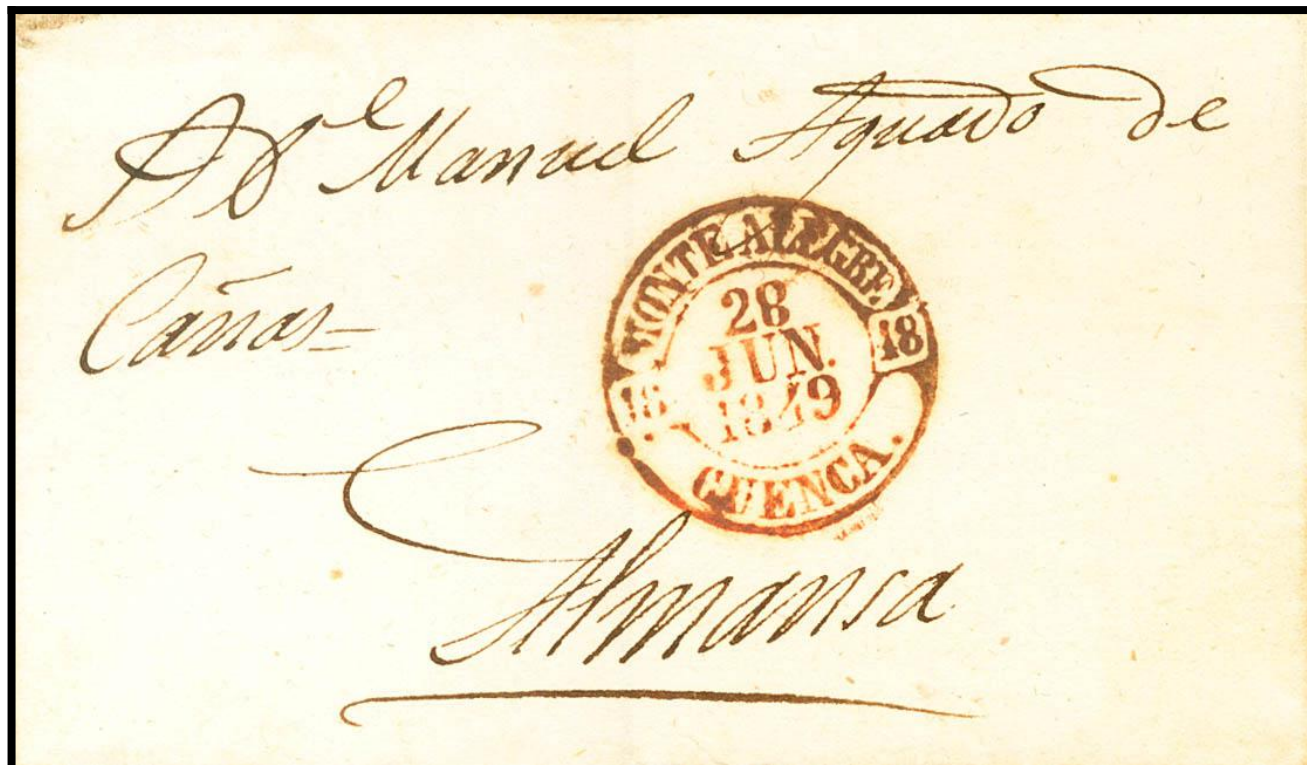 A Dⁿ Manuel Aguado de
Cañas=
MONTE ALEGRE.
18 18
28
JUN.
1849
CUENCA.
Almansa